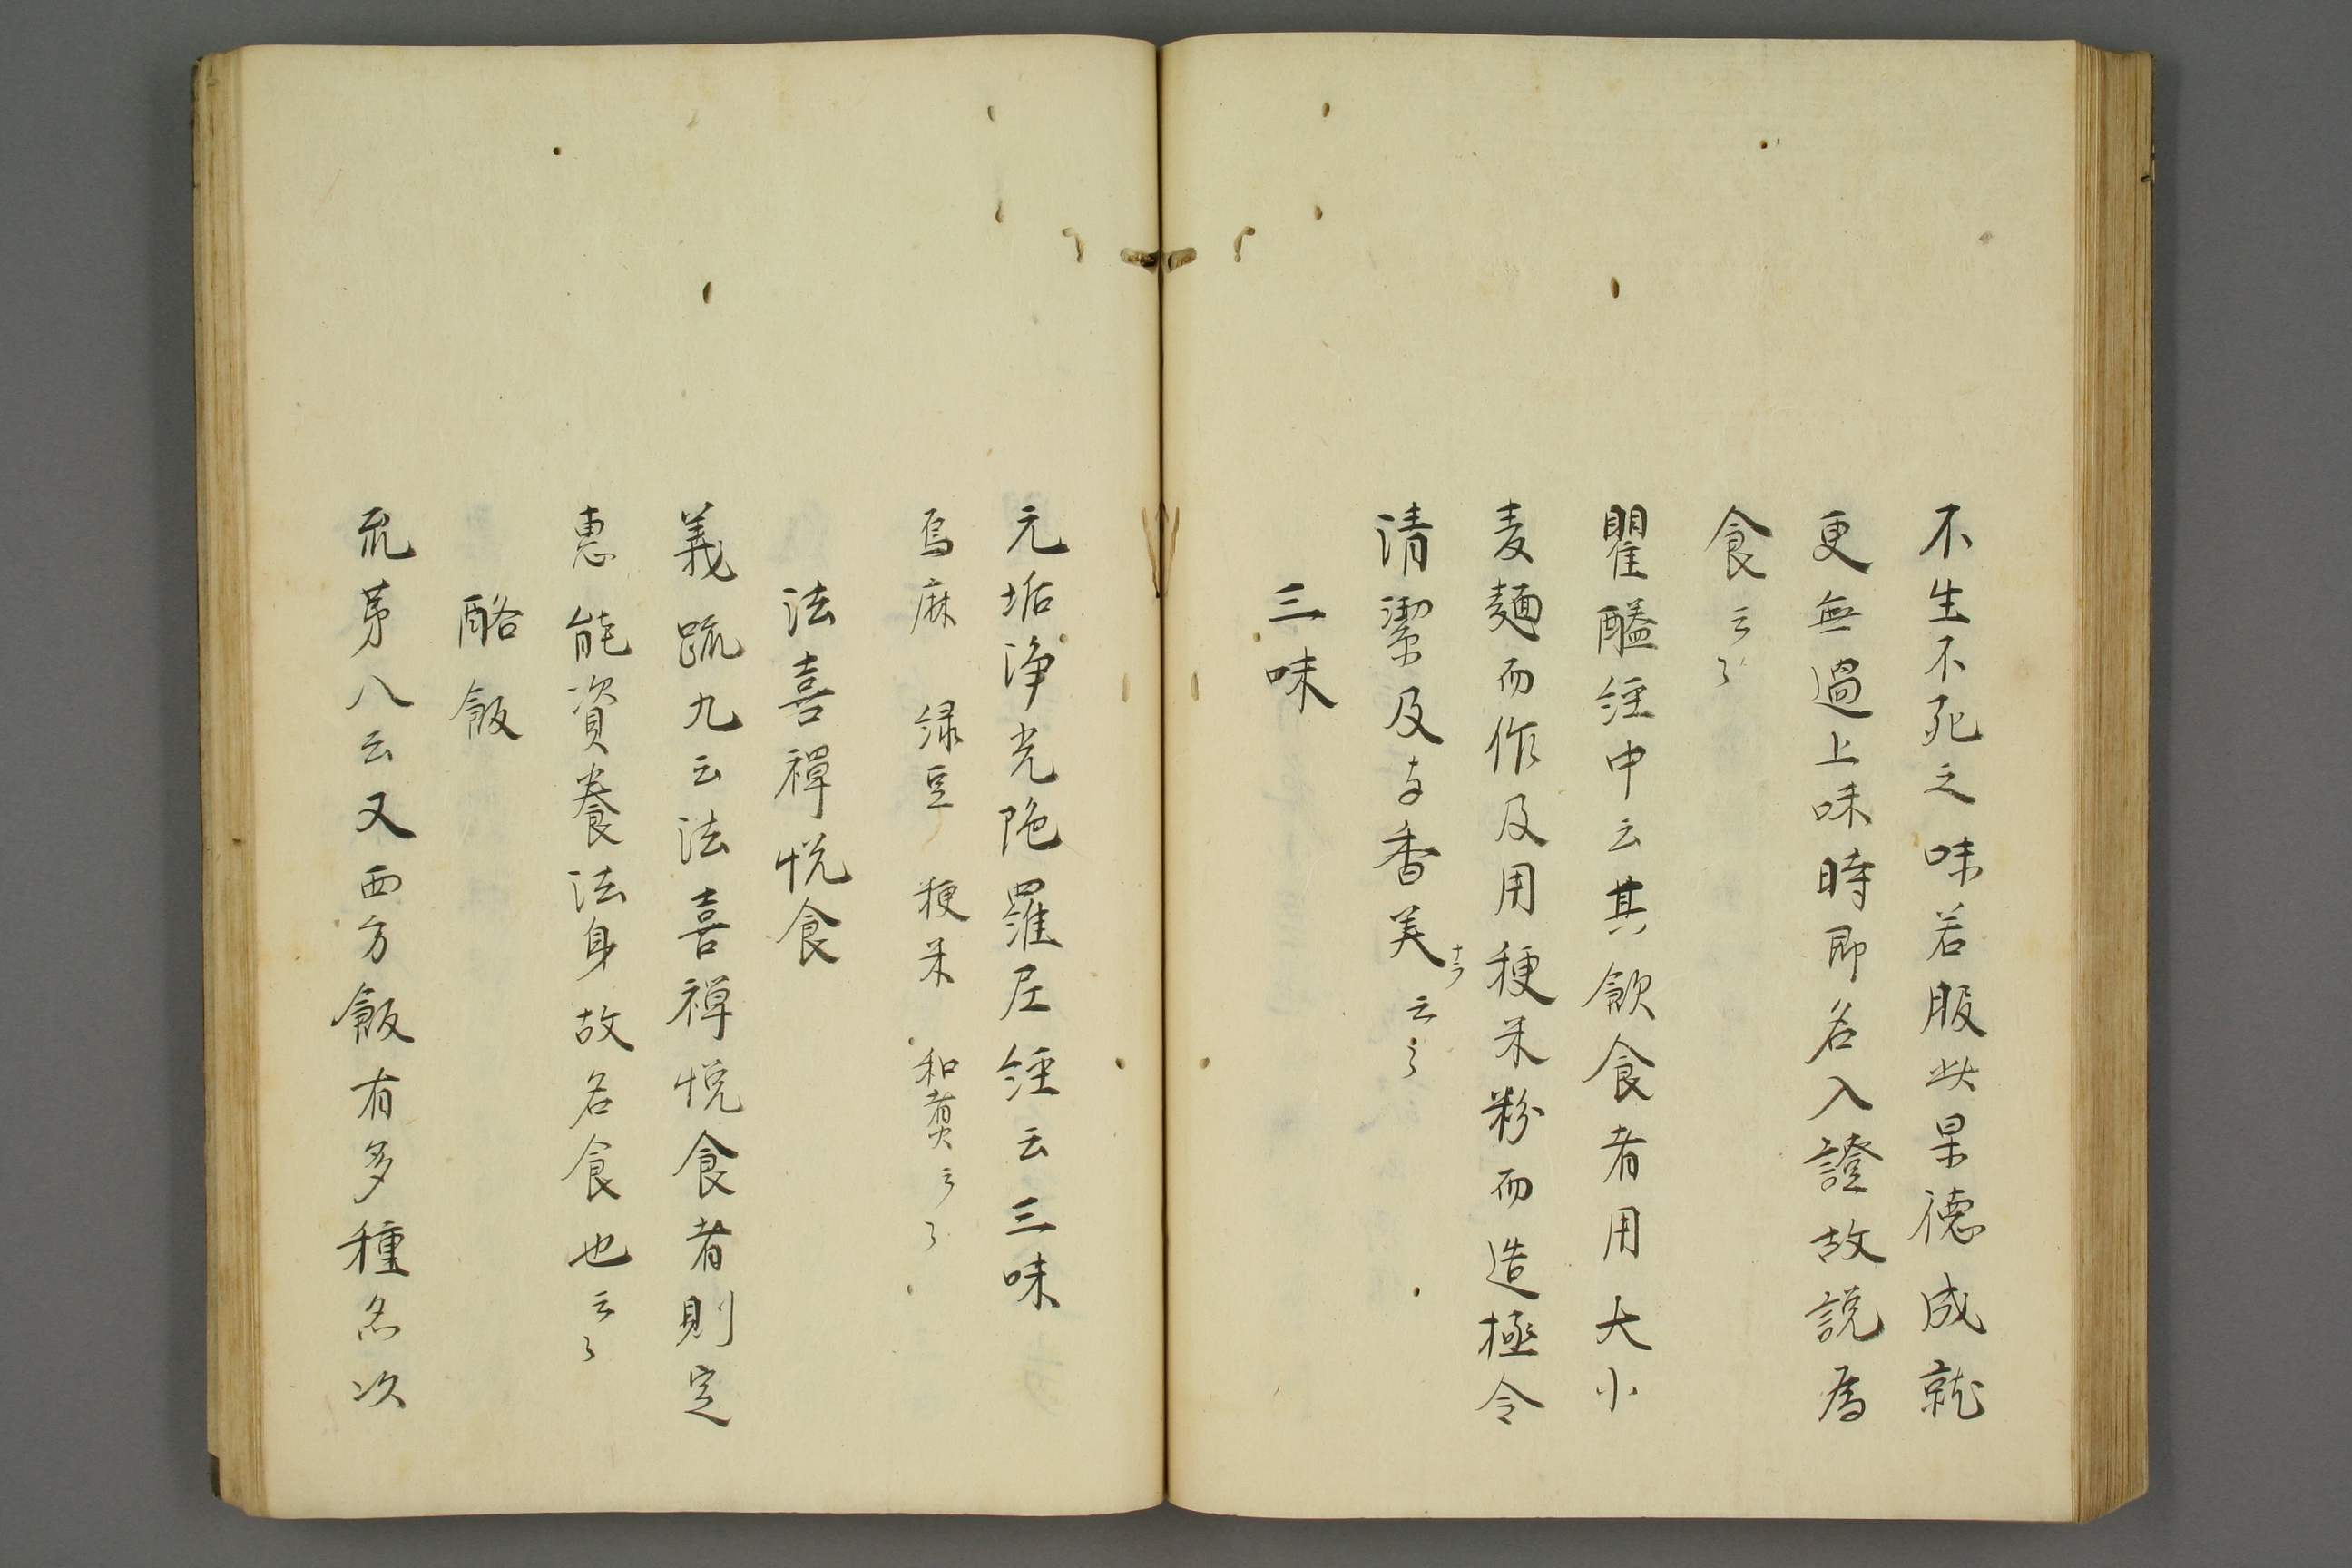 不生不死之味若服此果德成就
更無過上味時即名入證故説為
食云々
瞿醯経中云其飲食者用大小
麦麺而作及用粳米粉而造極令
清潔及与香美云々
三味
无垢浄光陁羅尼経云三味
烏麻 緑豆 粳米 和煑云々
法喜禅悦食
義䟽九云法喜禅悦食者則定
惠能資養法身故名食也云々
酪飯
䟽第八云又西方飯有多種名次